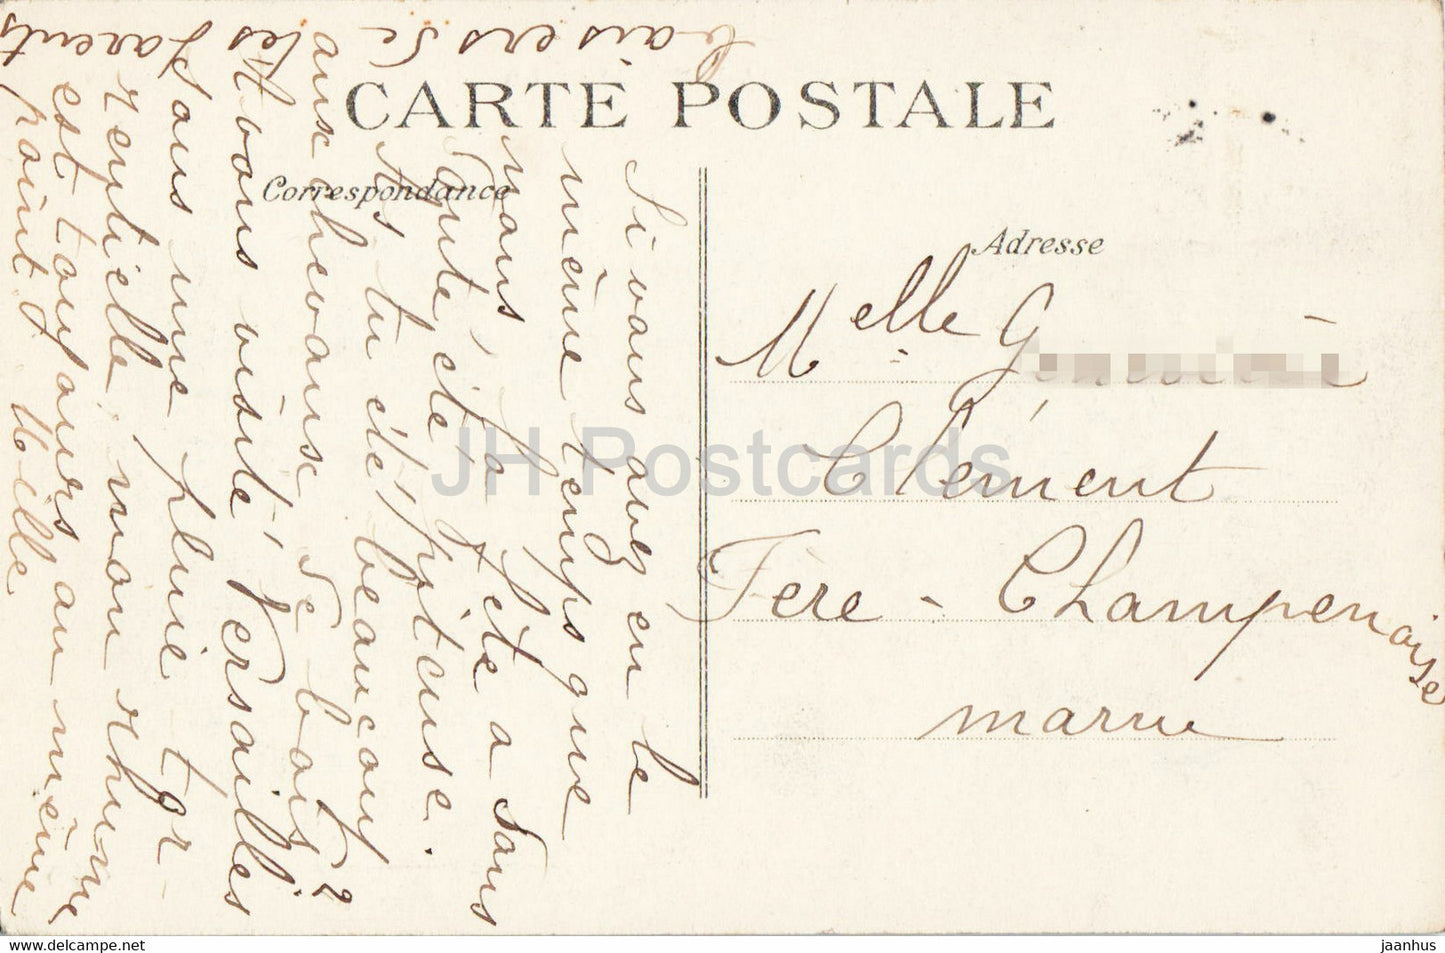 CARTE POSTALE
Correspondance
Adresse
Si vous avez eu le
même temps que
nous, la fête a sans
doute été piteuse.
As tu été beaucoup
aux chevaux de bois?
Nous avons visité Versailles
sous une pluie tor-
rentielle, mon rhume
est toujours au même
point
baisers de
tes parents
Melle G
Clément
Fère-Champenoise
Marne
JH Postcards
www.delcampe.net
jaanhus